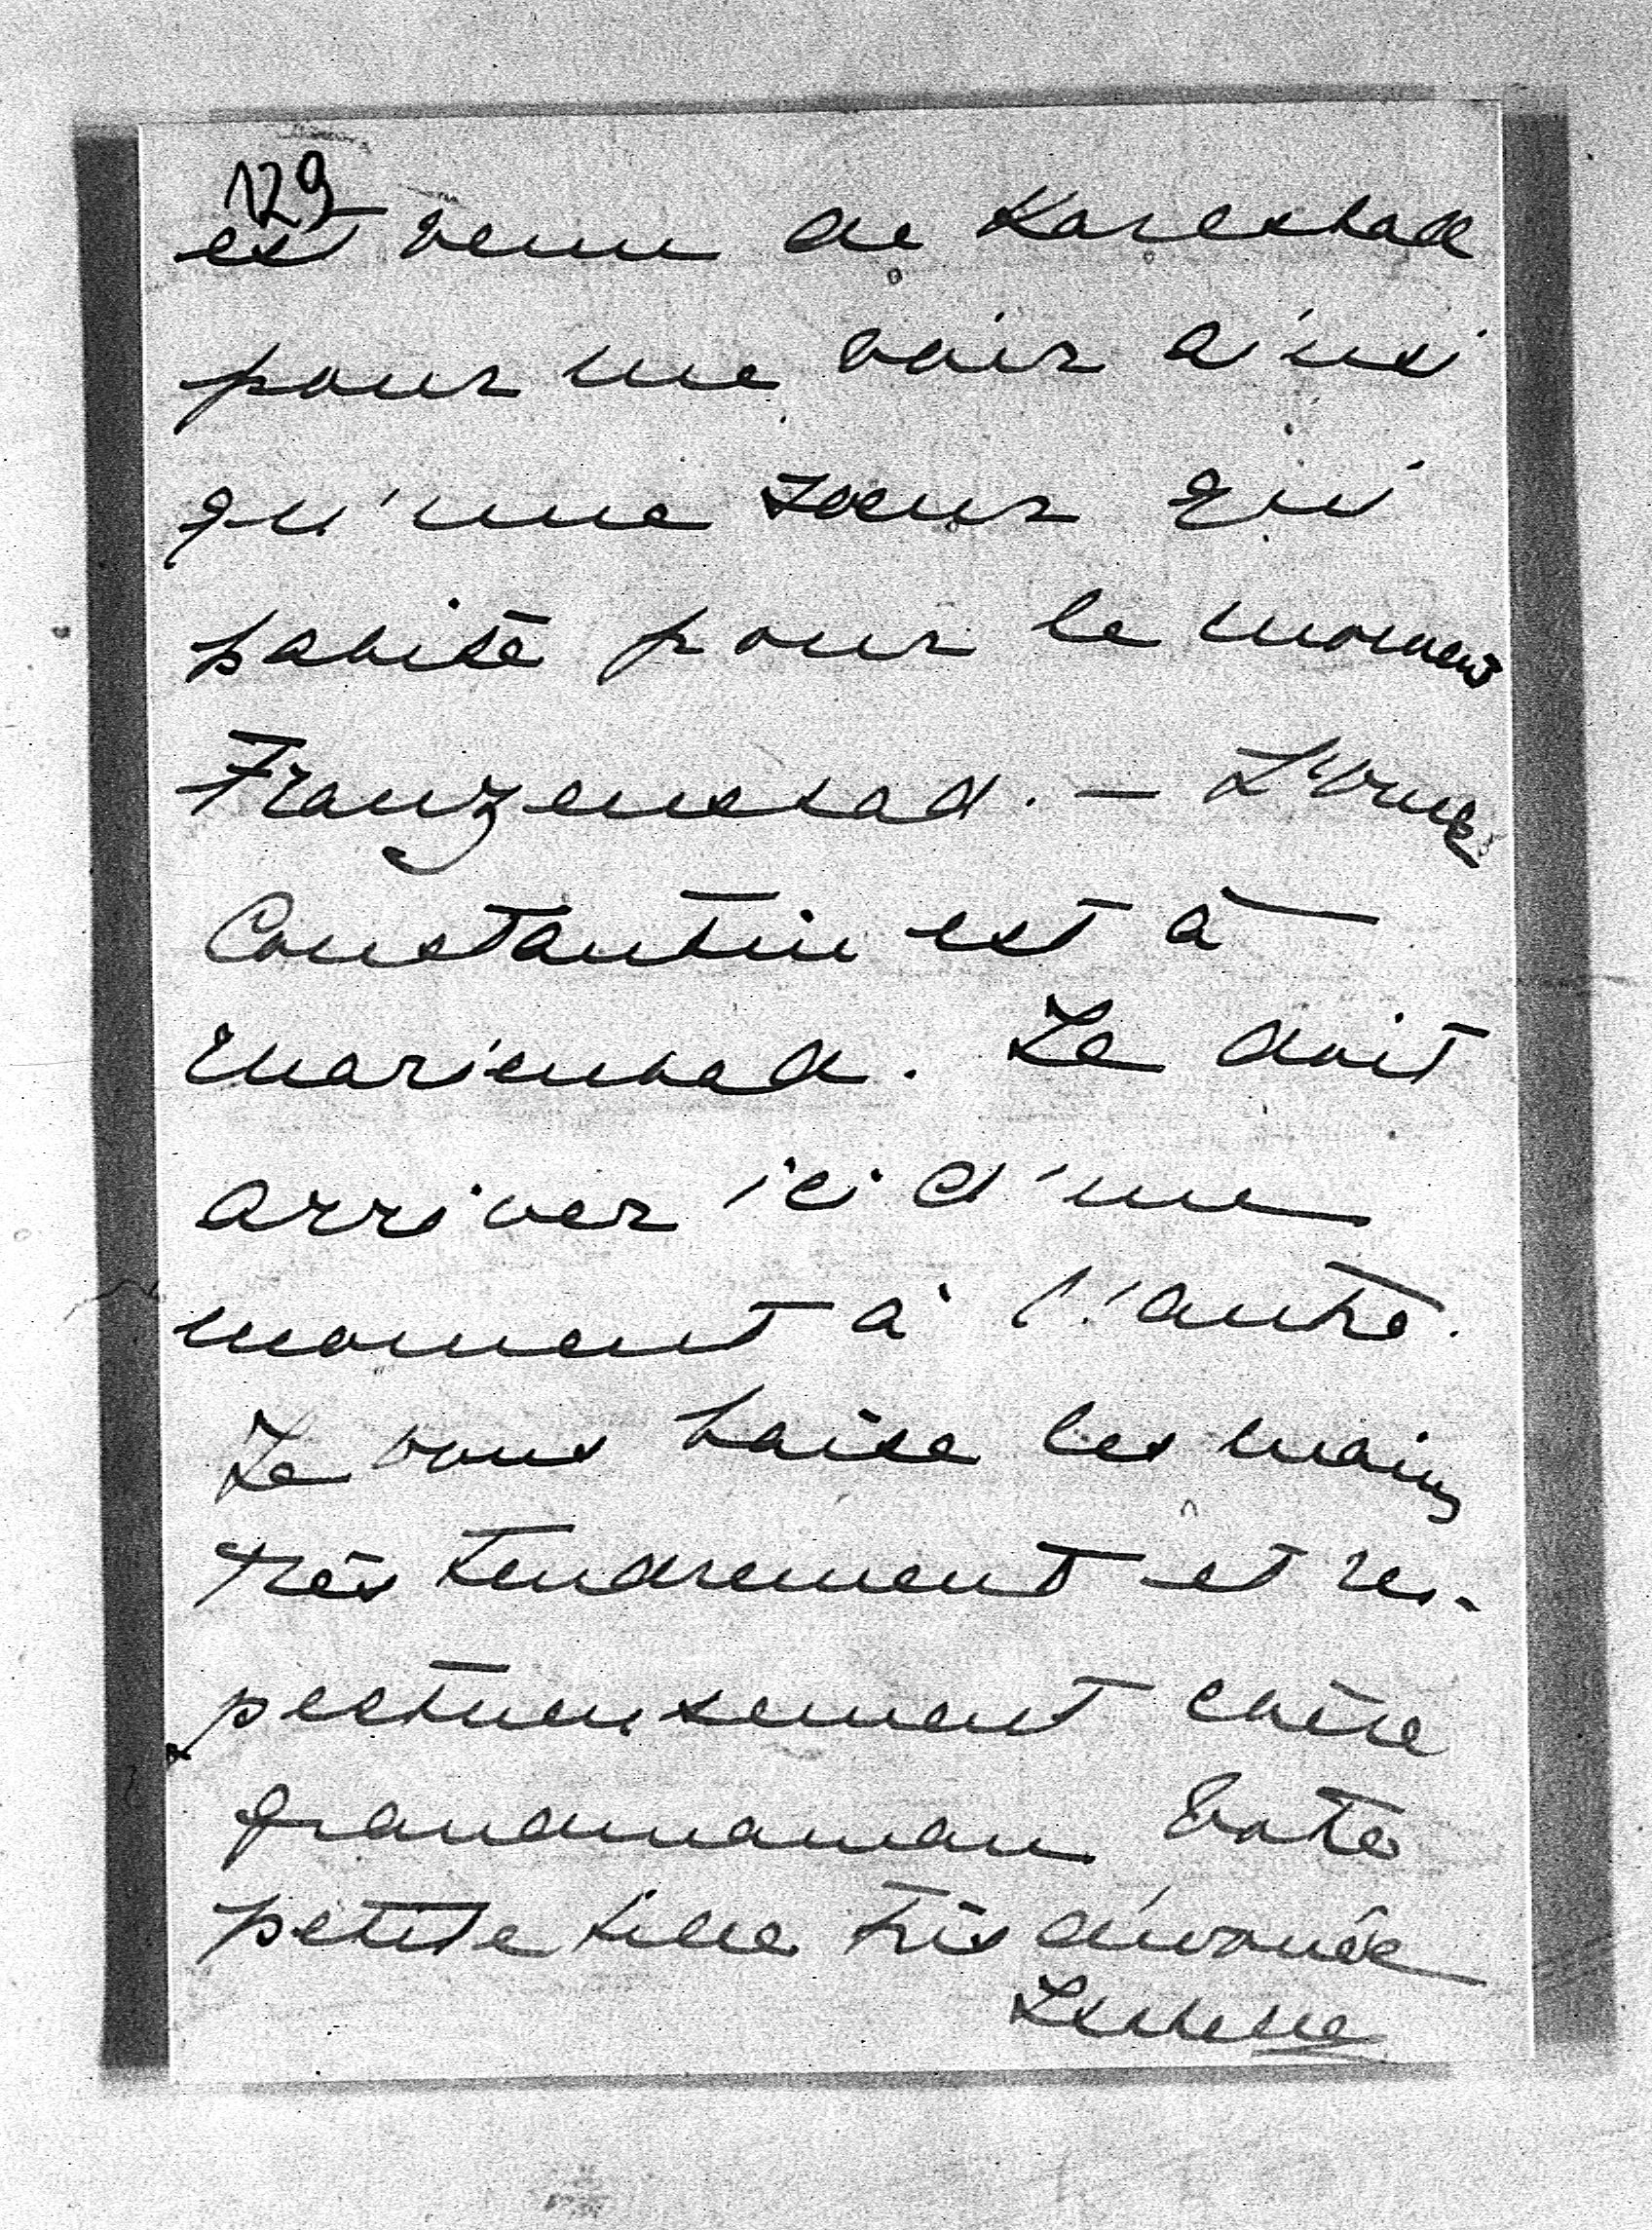 129
est venu de Karlsbad
pour me voir ainsi
qu'une soeur qui
habite pour le moment
Franzensbad. — L'oncle
Constantin est à
Marienbad. Le doit
arriver ici d'un
moment à l'autre.
Je vous baise les mains
très tendrement et res-
pectueusement chère
grandmaman Votre
petite fille très dévouée